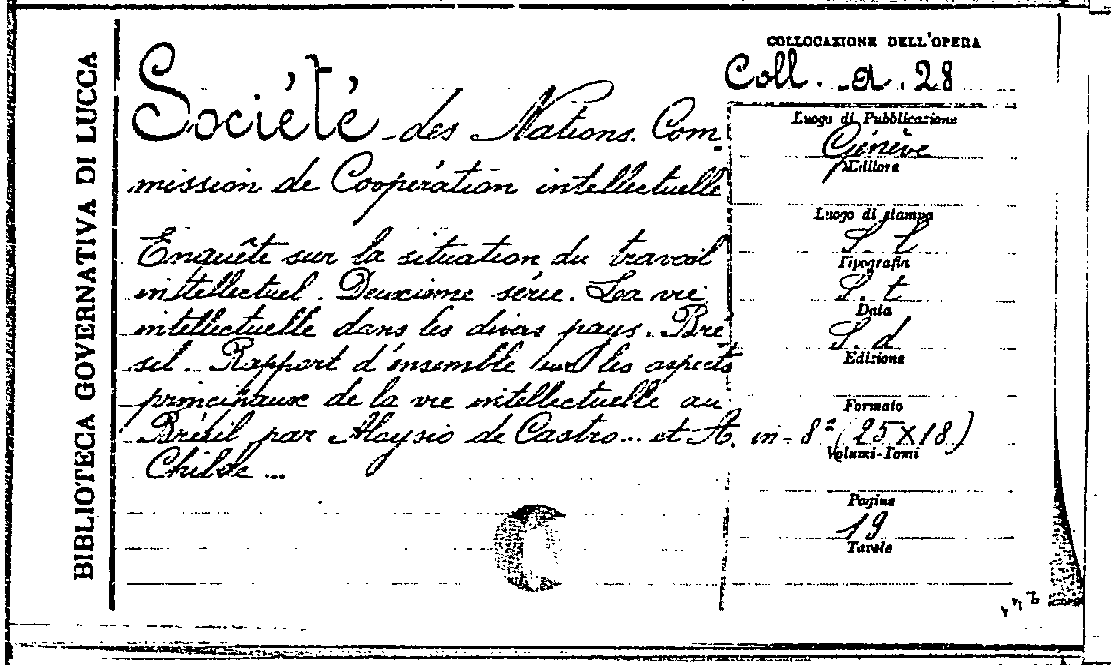 BIBLIOTECA GOVERNATIVA DI LUCCA
Société des Nations. Com-
mission de Coopération intellectuelle
Enquête sur la situation du travail
intellectuel. Deuxième série. La vie
intellectuelle dans les divers pays. Bré
sil. Rapport d'ensemble sur les aspects
principaux de la vie intellectuelle au
Brésil par Aloysio de Castro... et A.
Childe...
COLLOCAZIONE DELL'OPERA
Coll. a. 28
Luogo di Pubblicazione
Génève
Editore
Luogo di stampa
S. l
Tipografia
S. t
Data
S. d
Edizione
Formato
in-8° (25X18)
Volumi-Tomi
Pagine
19
Tavole